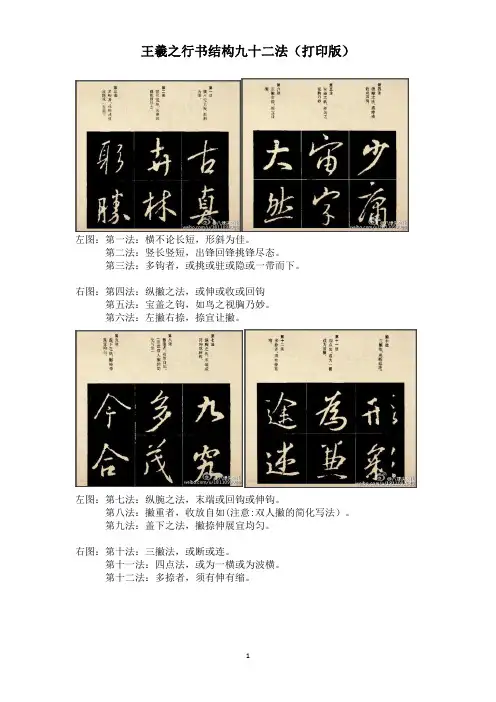 王羲之行书结构九十二法（打印版）
古
真
卉
林
躬
胜
少
庸
宙
字
大
然
左图：第一法：横不论长短，形斜为佳。
第二法：竖长竖短，出锋回锋挑锋尽态。
第三法：多钩者，或挑或驻或隐或一带而下。
右图：第四法：纵撇之法，或伸或收或回钩
第五法：宝盖之钩，如鸟之视胸乃妙。
第六法：左撇右捺，捺宜让撇。
九
多
茂
今
合
形
為
途
述
左图：第七法：纵腕之法，末端或回钩或伸钩。
第八法：撇重者，收放自如(注意:双人撇的简化写法）。
第九法：盖下之法，撇捺伸展宜均匀。
右图：第十法：三撇法，或断或连。
第十一法：四点法，或为一横或为波横。
第十二法：多捺者，须有伸有缩。
1